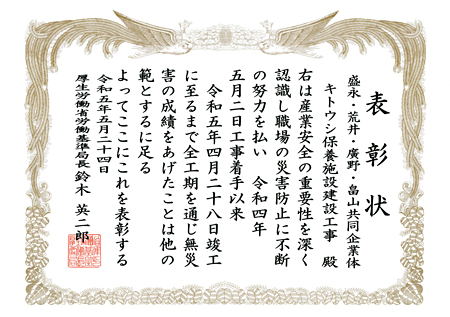 表彰状
盛永・荒井・廣野・畠山共同企業体
キトウシ保養施設建設工事 殿
右は産業安全の重要性を深く
認識し職場の災害防止に不断
の努力を払い 令和四年
五月二日工事着手以来
令和五年四月二十八日竣工
に至るまで全工期を通じ無災
害の成績をあげたことは他の
範とするに足る
よってここにこれを表彰する
令和五年五月二十四日
厚生労働省労働基準局長 鈴木 英二郎